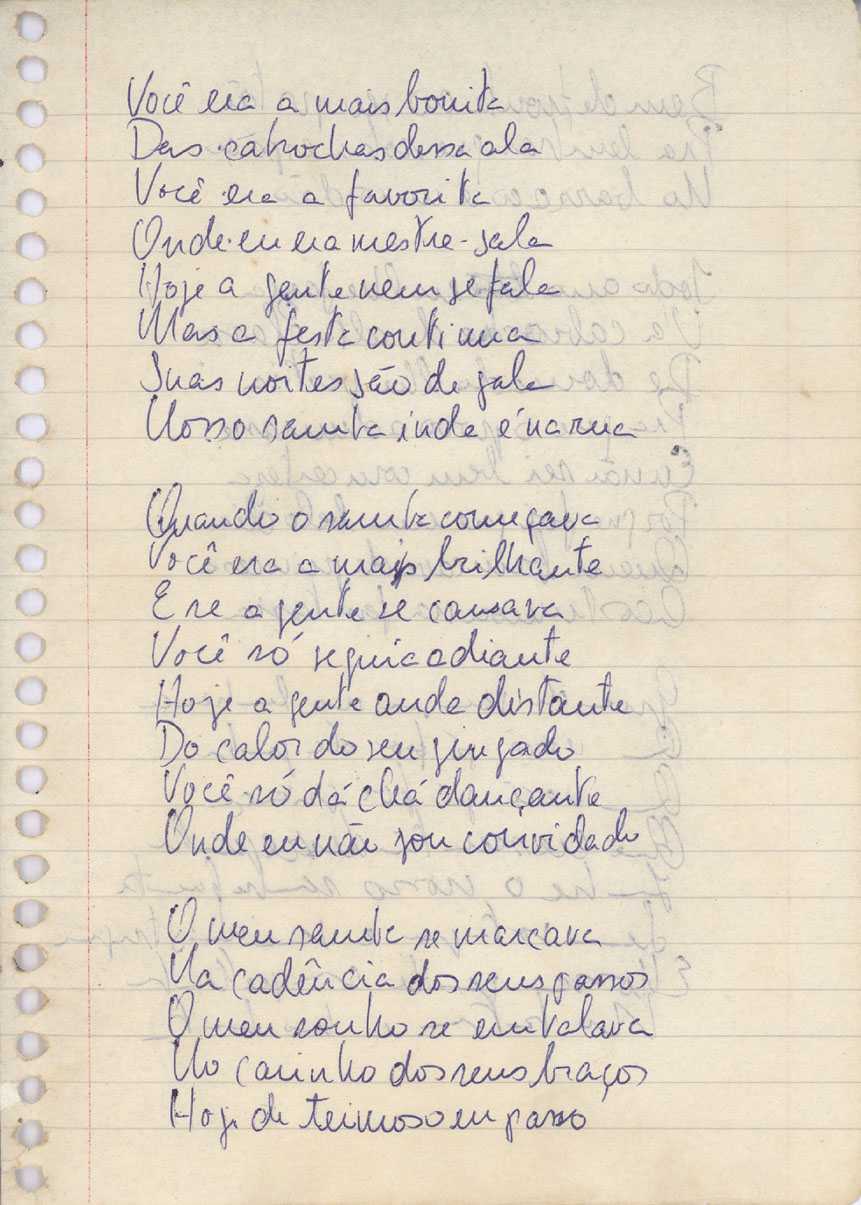 Você era a mais bonita
Das cabrochas dessa ala
Você era a favorita
Onde eu era mestre-sala
Hoje a gente nem se fala
Mas a festa continua
Suas noites são de gala
Nosso samba inda é na rua
Quando o samba começava
Você era a mais brilhante
E se a gente se cansava
Você só seguia adiante
Hoje a gente anda distante
Do calor do seu gingado
Você só dá chá dançante
Onde eu não sou convidado
O meu samba se marcava
Na cadência dos seus passos
O meu sonho se embalava
No carinho dos seus braços
Hoje de teimoso eu passo